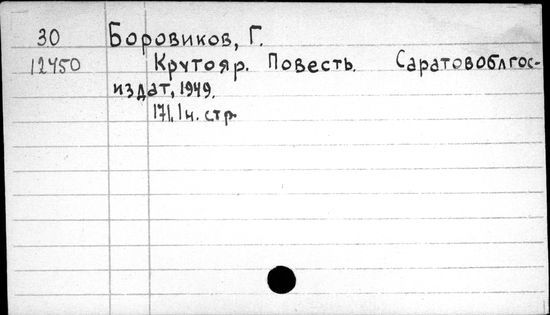 30 Боровиков, Г.
12450 Крутояр. Повесть. Саратовоблгос-
издат, 1949.
171, 1 н. стр.